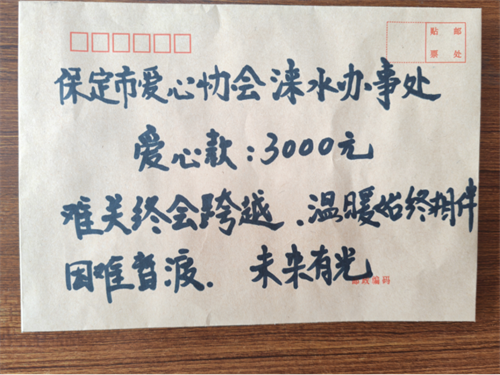 贴 邮
票 处
保定市爱心协会涞水办事处
爱心款:3000元
难关终会跨越、温暖始终相伴
困难暂渡. 未来有光
邮政编码